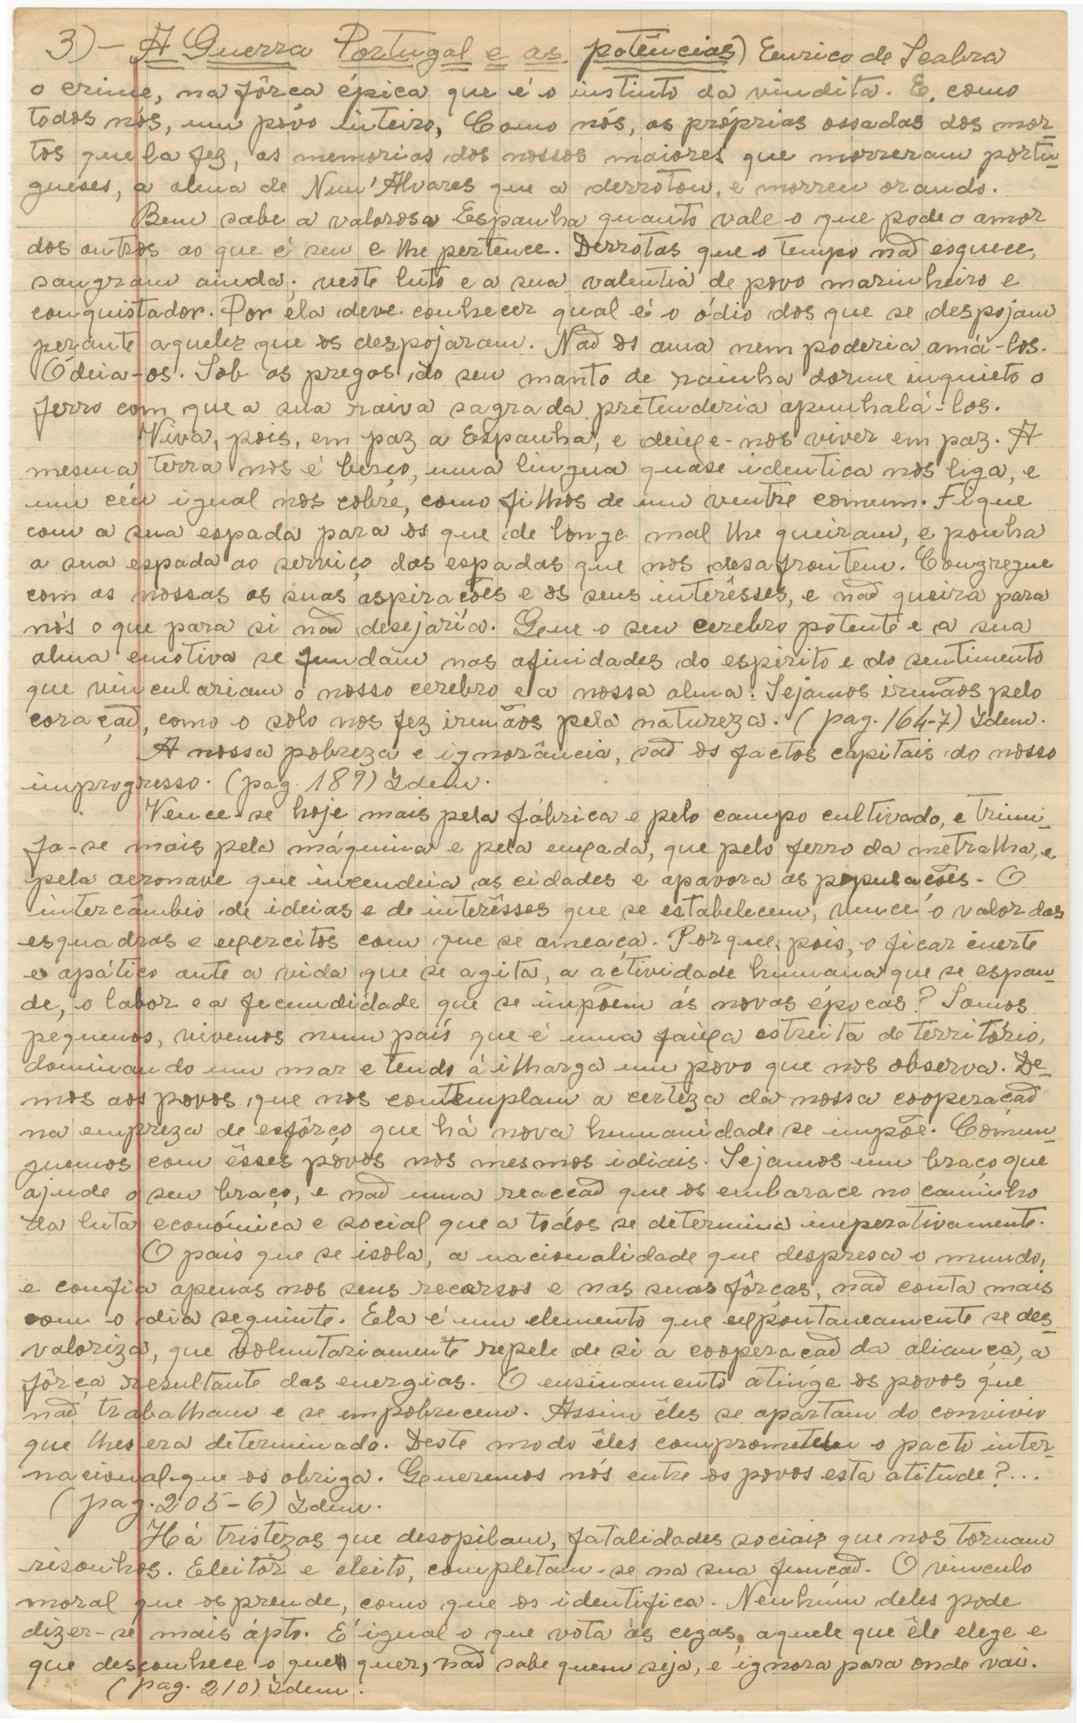 3)- A Guerra Portugal e as potências) Eurico de Seabra
o crime, na fôrça épica que é o instinto da vindita. E, como
todos nós, um povo inteiro, Como nós, as próprias ossadas dos mor-
tos que la fez, as memorias dos nossos maiores que morreram portu-
gueses, a alma de Nun'Alvares que a derrotou, e morreu orando.
Bem sabe a valorosa Espanha quanto vale o que pode o amor
dos outros ao que é seu e lhe pertence. Derrotas que o tempo não esquece,
sangram ainda; veste luto e a sua valentia de povo marinheiro e
conquistador. Por ela deve conhecer qual é o ódio dos que se despojam
perante aqueles que os despojaram. Não os ama nem poderia amá-los.
Odeia-os. Sob as pregas do seu manto de rainha dorme inquieto o
ferro com que a sua raiva sagrada pretenderia apunhalá-los.
Viva, pois, em paz a Espanha, e deixe-nos viver em paz. A
mesma terra nos é berço, uma lingua quase identica nos liga, e
um céu igual nos cobre, como filhos de um ventre comum. Fique
com a sua espada para os que de longe mal lhe queiram, e ponha
a sua espada ao serviço das espadas que nos desafrontem. Congregue
com as nossas as suas aspirações e os seus interêsses, e não queira para
nós o que para si não desejaría. Que o seu cerebro potente e a sua
alma emotiva se fundam nas afinidades do espirito e do sentimento
que vinculariam o nosso cerebro e a nossa alma. Sejamos irmãos pelo
coração, como o solo nos fez irmãos pela natureza. (pag. 164-7) Idem.
A nossa pobreza e ignorância, são os factos capitais do nosso
improgresso. (pag. 189) Idem.
Vence-se hoje mais pela fábrica e pelo campo cultivado, e triun-
fa-se mais pela máquina e pela enxada, que pelo ferro da metralha, e
pela aeronave que incendeia as cidades e apavora as populações. O
intercâmbio de ideias e de interêsses que se estabelecem, vence o valor das
esquadras e exercitos com que se ameaça. Porque, pois, o ficar inerte
e apático ante a vida que se agita, a actividade humana que se expan-
de, o labor e a fecundidade que se impõem ás novas épocas? Somos
pequenos, vivemos num país que é uma faixa estreita de território,
dominando um mar e tendo á ilharga um povo que nos observa. De-
mos aos povos que nos contemplam a certeza da nossa cooperação
na empreza de esfôrço que há nova humanidade se impõe. Comun-
guemos com êsses povos nos mesmos idiais. Sejamos um braço que
ajude o seu braço, e não uma reacção que os embarace no caminho
da luta económica e social que a todos se determina imperativamente.
O país que se isola, a nacionalidade que despresa o mundo,
e confia apenas nos seus recursos e nas suas fôrças, não conta mais
com o dia seguinte. Ela é um elemento que expontaneamente se des-
valoriza, que voluntariamente repele de si a cooperação da aliança, a
fôrça resultante das energias. O ensinamento atinge os povos que
não trabalham e se empobrecem. Assim êles se apartam do convivio
que lhes era determinado. Deste modo êles comprometem o pacto inter-
nacional que os obriga. Queremos nós entre os povos esta atitude?...
(pag. 205-6) Idem.
Há tristezas que desopilam, fatalidades sociais que nos tornam
risonhos. Eleitôr e eleito, completam-se na sua função. O vinculo
moral que os prende, como que os identifica. Nenhum deles pode
dizer-se mais ápto. É igual o que vota ás cegas, aquele que êle elege e
que desconhece o que quer, não sabe quem seja, e ignora para onde vai.
(pag. 210) Idem.